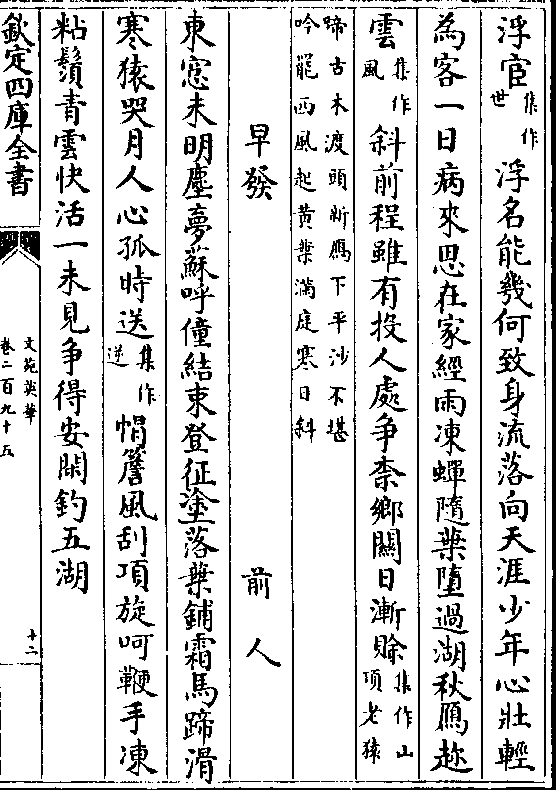 浮宦集作世浮名能幾何致身流落向天涯少年心壯輕
為客一日病來思在家經雨凍蟬隨葉墮過湖秋鴈趂
雲集作風斜前程雖有投人處争柰鄉關日漸賒集作山項老猿
啼古木渡頭新鴈下平沙不堪吟罷西風起黄葉滿庭寒日斜
早發 前人
東窓未明塵夢蘇呼僮結束登征塗落葉鋪霜馬蹄滑
寒猿哭月人心孤時送集作逆帽簷風刮項旋呵鞭手凍
粘鬚青雲快活一未見争得安閑釣五湖
欽定四庫全書
文苑英華
卷二百九十五
十二